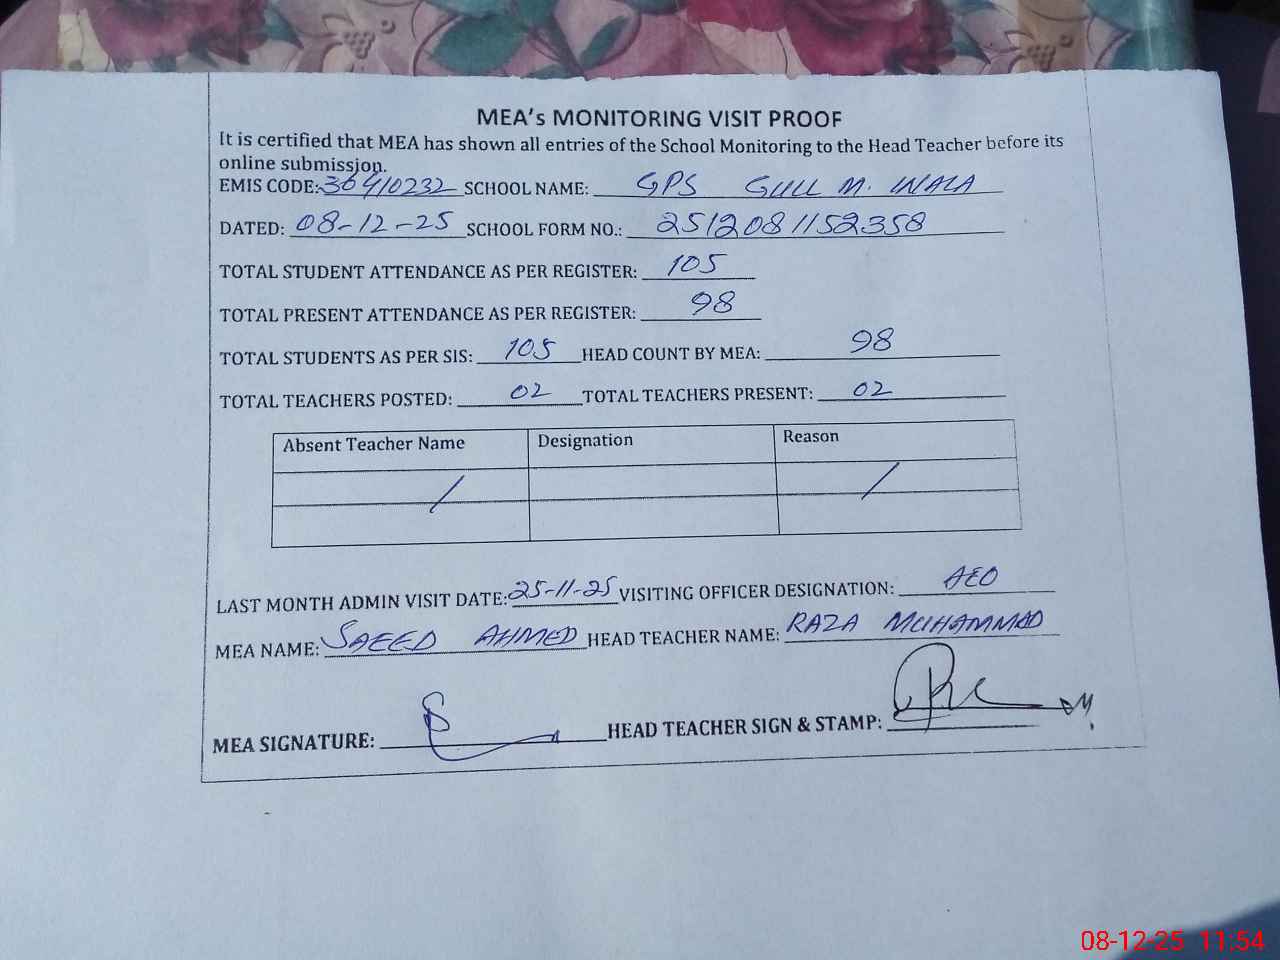 MEA's MONITORING VISIT PROOF
It is certified that MEA has shown all entries of the School Monitoring to the Head Teacher before its
online submission.
EMIS CODE: 30410232 SCHOOL NAME: GPS GULL M. WALA
DATED: 08-12-25 SCHOOL FORM NO.: 2512081152358
TOTAL STUDENT ATTENDANCE AS PER REGISTER: 105
TOTAL PRESENT ATTENDANCE AS PER REGISTER: 98
TOTAL STUDENTS AS PER SIS: 105 HEAD COUNT BY MEA: 98
TOTAL TEACHERS POSTED: 02 TOTAL TEACHERS PRESENT: 02
Absent Teacher Name Designation Reason
/ /
LAST MONTH ADMIN VISIT DATE: 25-11-25 VISITING OFFICER DESIGNATION: AEO
MEA NAME: SAEED AHMED HEAD TEACHER NAME: RAZA MUHAMMAD
MEA SIGNATURE: HEAD TEACHER SIGN & STAMP:
08-12-25 11:54